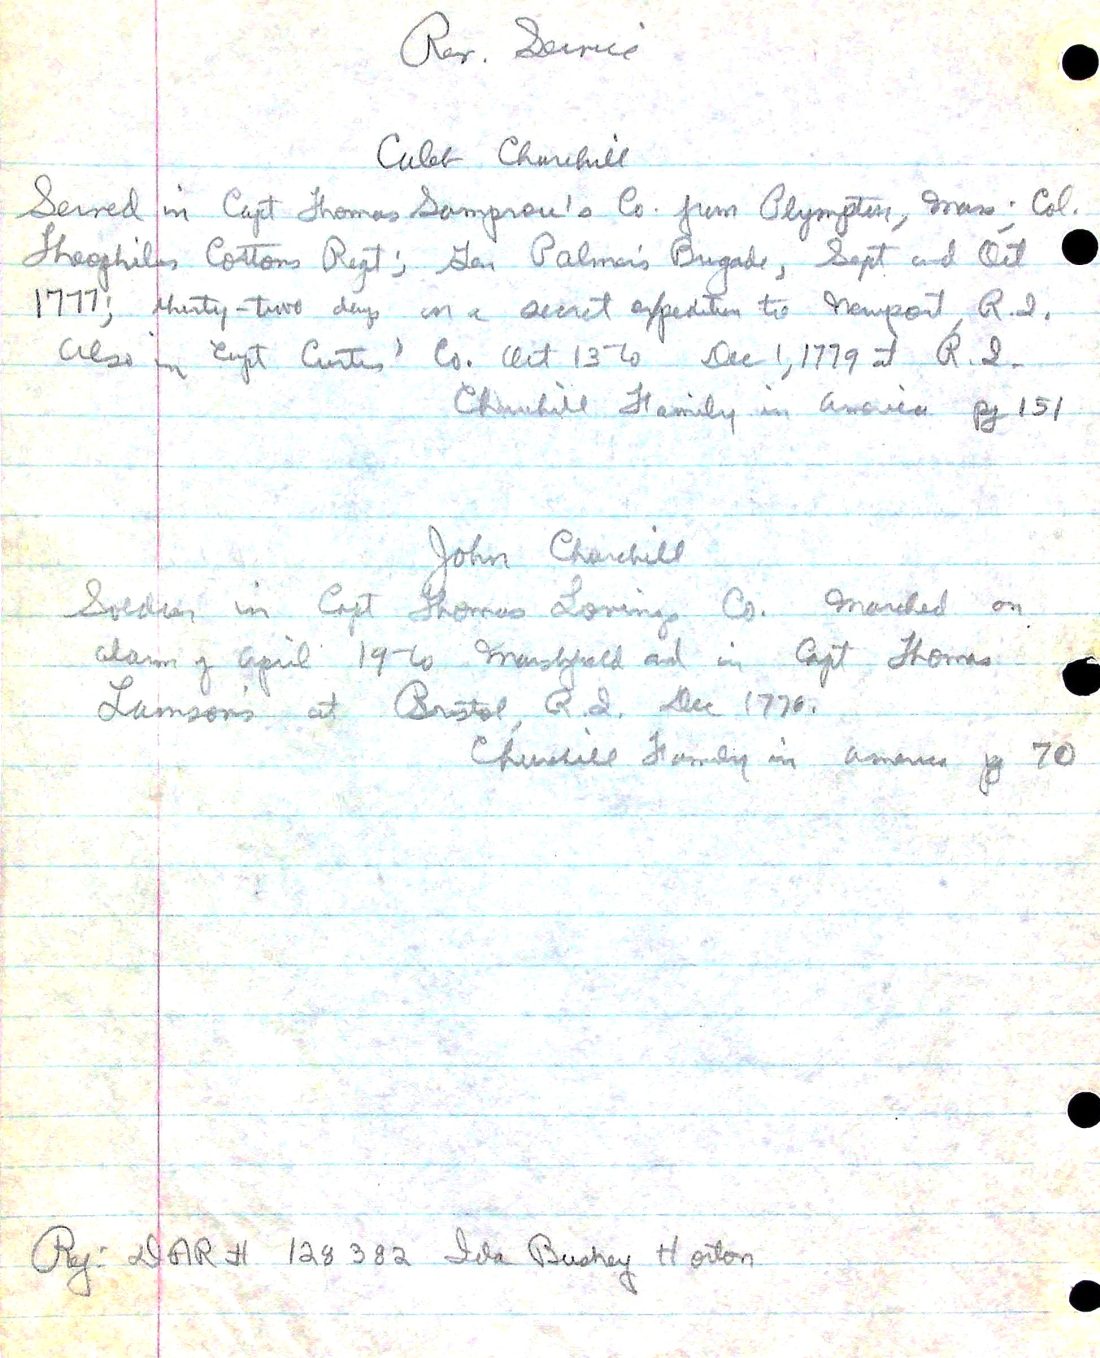 Rev. Service
Caleb Churchill
Served in Capt Thomas Sampson's Co. from Plympton, Mass; Col.
Theophilus Cottons Regt; Gen Palmer's Brigade, Sept and Oct
1777; thirty-two days on a secret expedition to Newport, R.I.
Also in Capt Curtis' Co. Oct 13 to Dec 1, 1779 at R.I.
Churchill Family in America pg 151
John Churchill
Soldier in Capt Thomas Lorings Co. Marched on
alarm of April 19 to Marshfield and in Capt Thomas
Samson's at Bristol, R.I. Dec 1776.
Churchill Family in America pg 70
DAR # 128382 Ida Bushey Horton